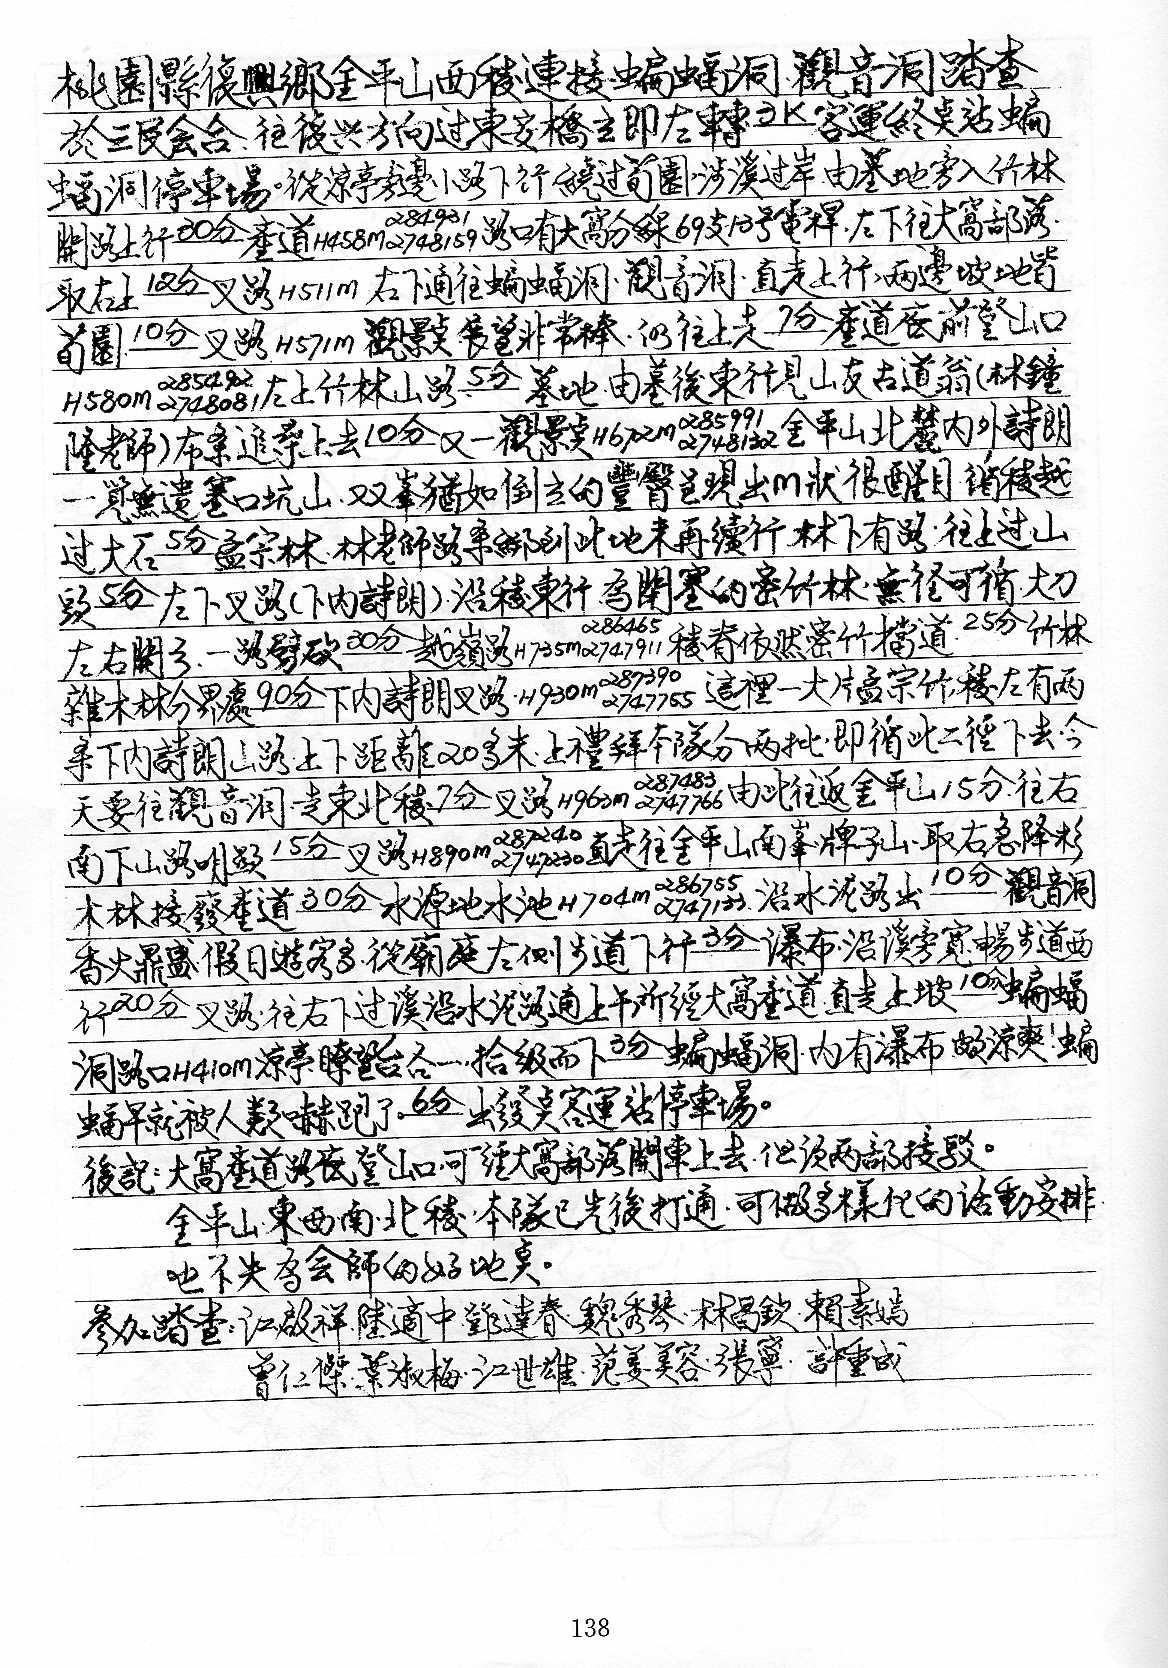 桃園縣復興鄉金平山西稜連接蝙蝠洞.觀音洞踏查
於三民会合、往復兴方向过東安橋立即左轉3K客運終点站蝙
蝠洞停車場。從涼亭旁邊小路下行繞过荀園.涉溪过岸.由墓地旁入竹林
開路上行30分產道H458m 284931 2748159路口有大窩分線69支13号電桿.左下往大窩部落.
取右上12分叉路H511m右下通往蝙蝠洞.觀音洞.直走上行,两邊坡地皆
荀園.10分叉路H571m觀景点展望非常棒.仍往上走7分產道底前登山口
H580m 285492 2748081左上竹林山路.5分墓地.由墓後東行見山友古道翁(林鐘
隆老師)布条追尋上去10分又一觀景点H672m 285991 2748132金平山北麓内外詩朗
一覽無遺塞口坑山.双峯猶如倒立的豐臀呈現出m狀很醒目循稜越
过大石5分孟宗林.林老師路条綁到此地来再續行.林下有路.往上过山
頭5分左下叉路(下内詩朗).沿稜東行.為閉塞的密竹林.無径可循.大刀
左右開弓.一路劈砍30分越嶺路H735m 286465 2747911稜脊依然密竹擋道.25分竹林
雜木林分界處90分下内詩朗叉路.H930m 287390 2747755這裡一大片孟宗竹,稜左有两
条下内詩朗山路.上下距離20多米.上禮拜本隊分两批.即循此二徑下去.今
天要往觀音洞.走東北稜.7分叉路H963m 287483 2747766由此往返金平山15分.往右
南下山路明顯15分叉路H890m 287240 2747230直走往金平山南峯.牌子山.取右急降杉
木林接廢產道30分水源地水池H704m 286755 2747133.沿水泥路出10分觀音洞
香火鼎盛.假日遊客多.從廟庭左側步道下行3分瀑布.沿溪旁寬暢步道西
行20分叉路.往右下过溪沿水泥路通上午所經大窩產道.直走上坡10分蝙蝠
洞路口H410m涼亭瞭望台合一.拾級而下3分蝙蝠洞.内有瀑布頗涼爽!蝙
蝠早就被人類嚇跑了。6分出發点客運站停車場。
後記:大窩產道路底登山口.可經大窩部落開車上去.但須两部接駁。
金平山.東西南.北稜.本隊已先後打通.可做多樣化的活動安排.
也不失為会師的好地点。
參加踏查:江啟祥.陸適中.鄧達春.魏秀琴.林昌欽.賴素嫣
曾仁傑.葉淑梅.江世雄.范姜美容.張寧.許重成
138